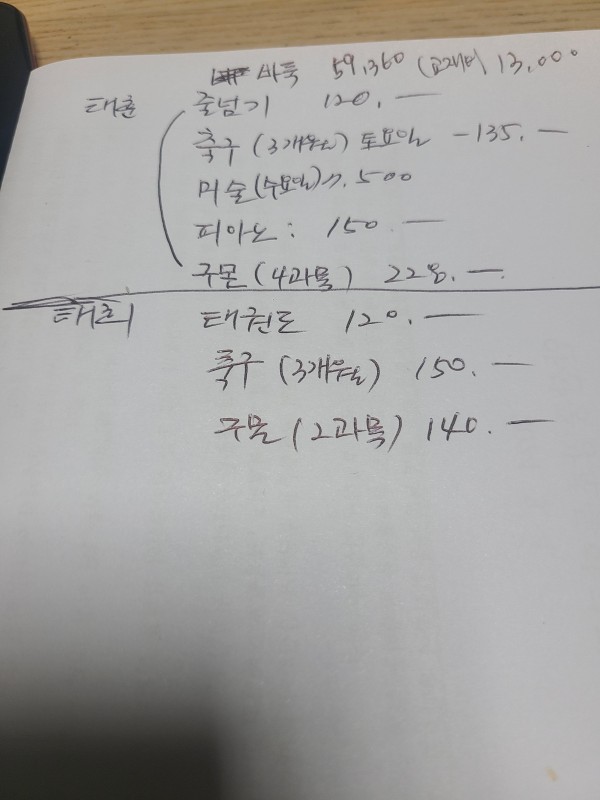 바둑 59,360 (교재비) 13,000
태훈 줄넘기 120.—
축구 (3개월) 토요일 - 135.—
미술 (수요일) 77.500
피아노 : 150.—
구몬 (4과목) 228.—
태희 태권도 120.—
축구 (3개월) 150.—
구몬 (2과목) 140.—